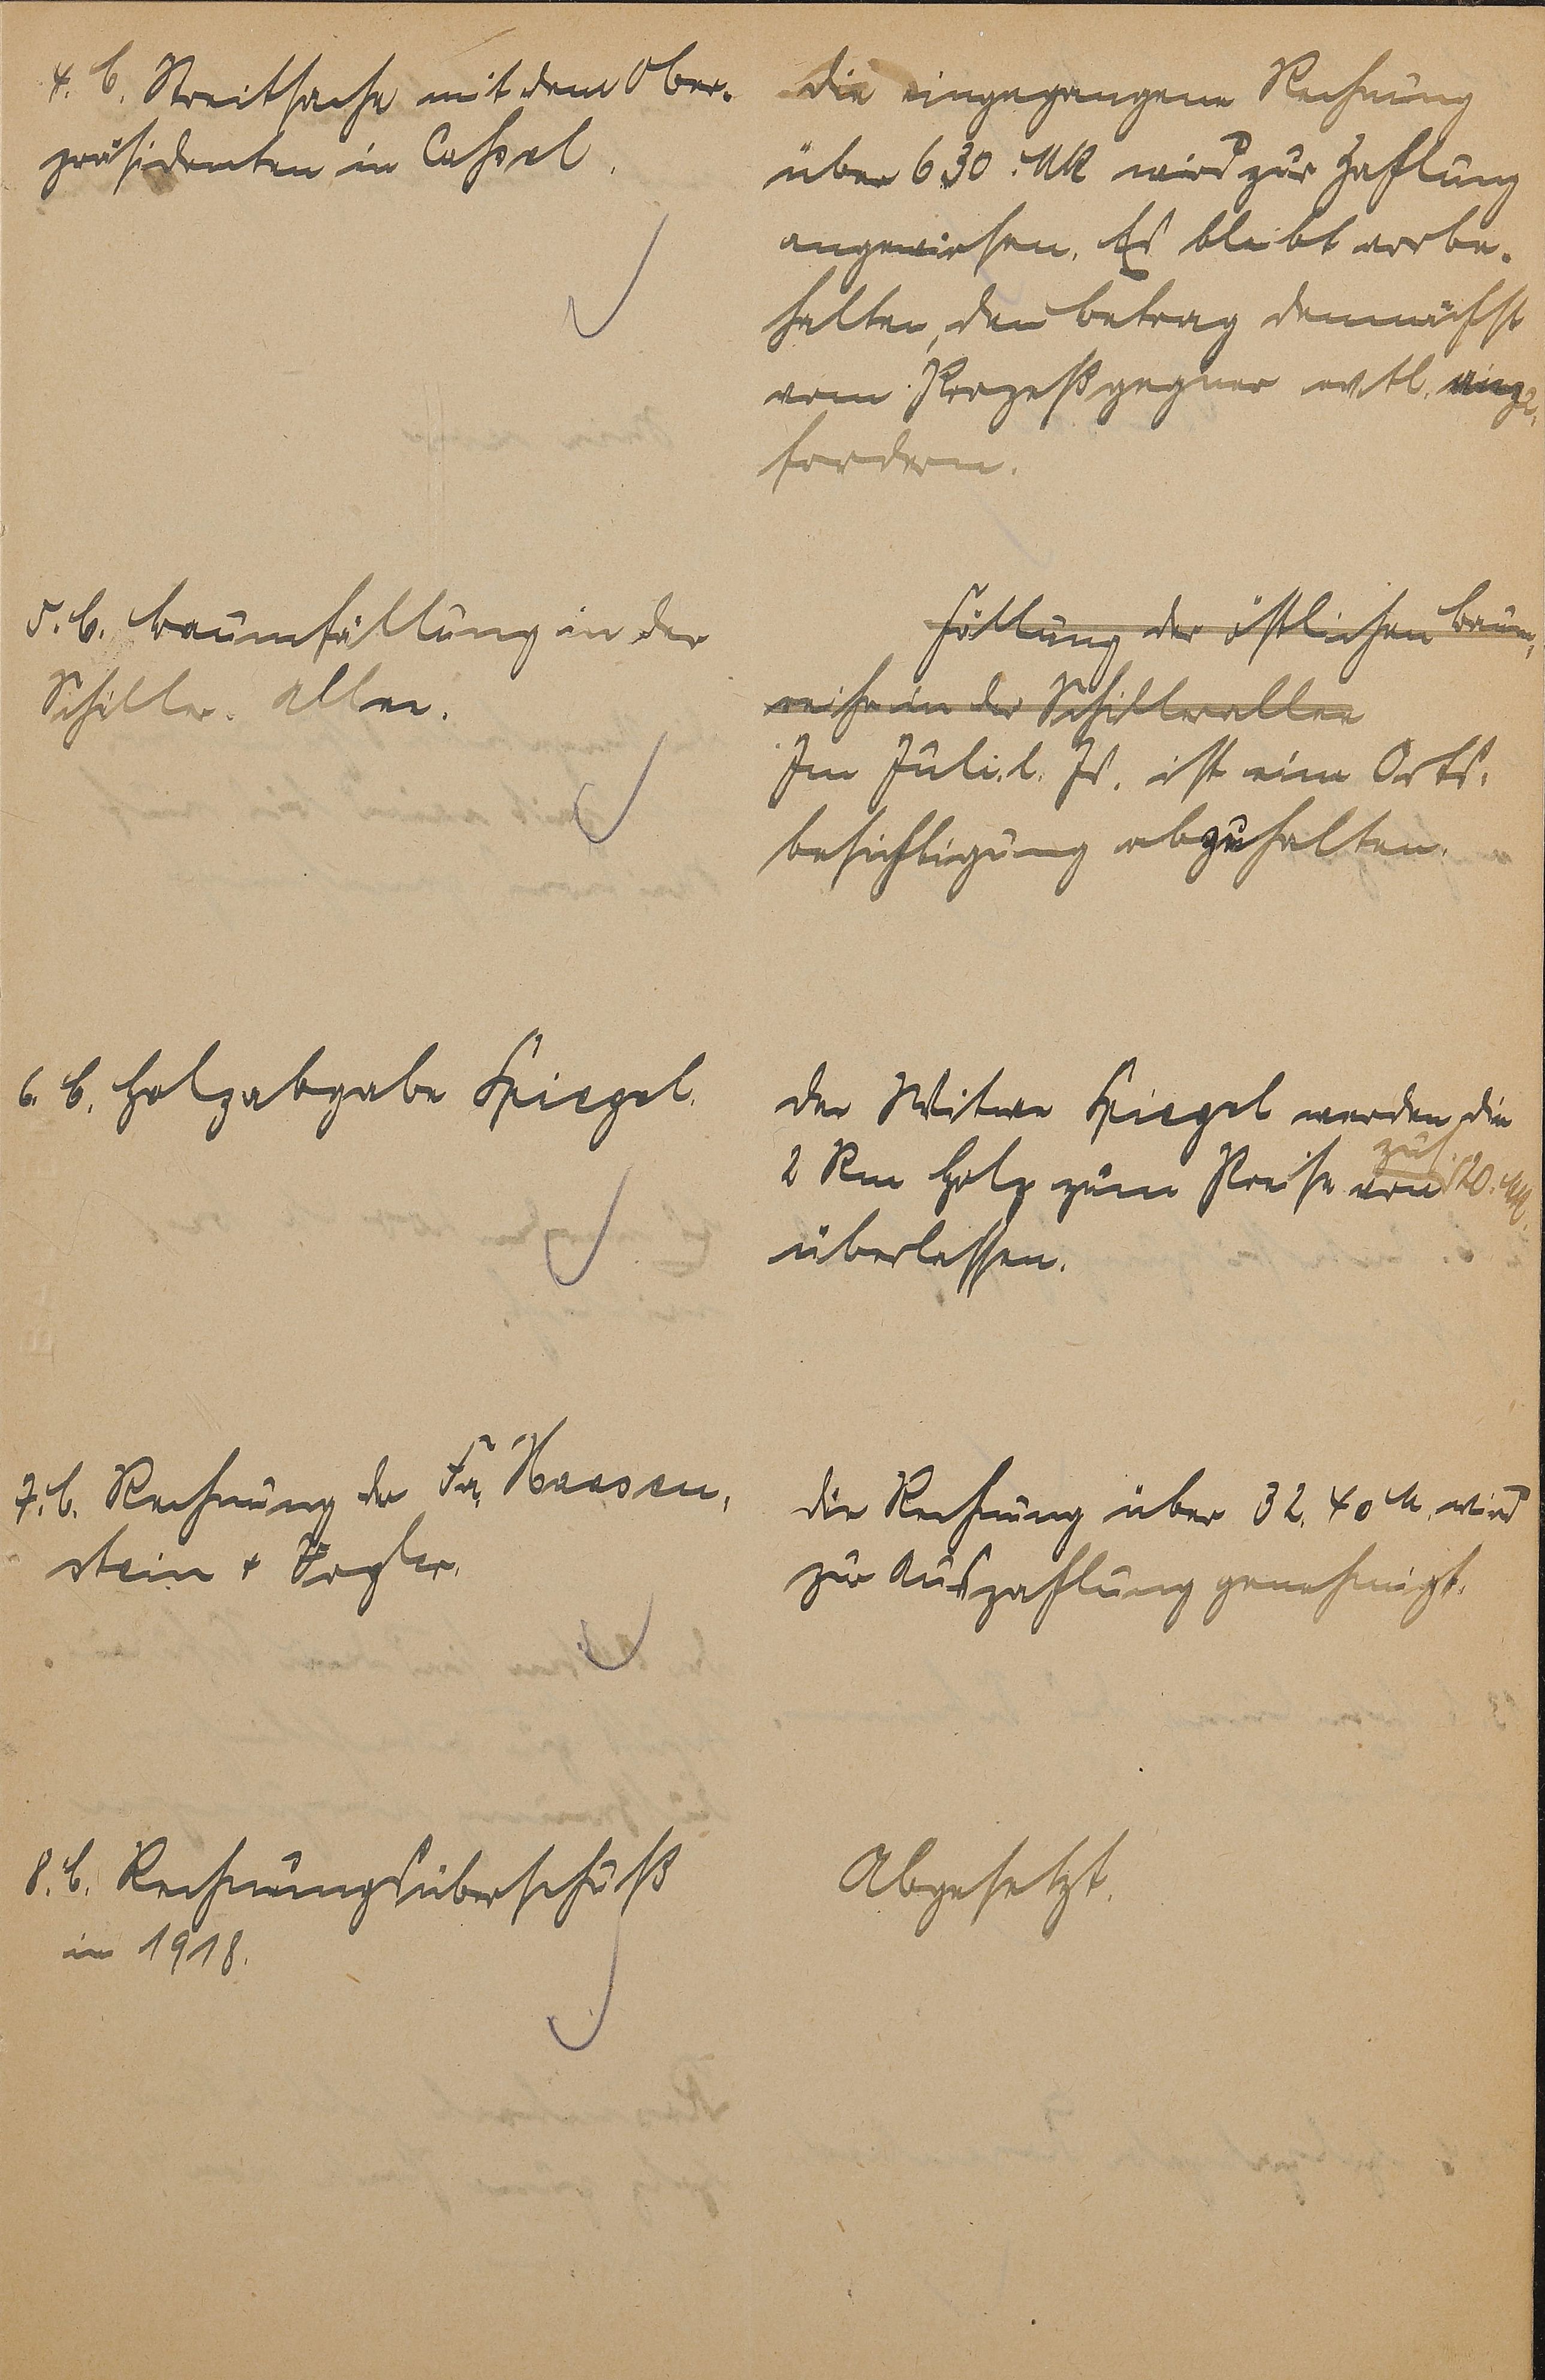 4. b. Streitsache mit dem Ober-
präsidenten in Cassel.
Die eingegangene Rechnung
über 630 Mk wird zur Zahlung
angewiesen. Es bleibt vorbe-
halten, den Betrag demnächst
vom Prozeßgegner evtl. einzu-
fordern.
5. b. Baumfällung in der
Schiller-Allee.
Fällung der östlichen Baum-
reihe in der Schillerallee
Im Juli l. Js. ist eine Orts-
besichtigung abzuhalten.
6. b. Holzabgabe Spiegel.
Der Witwe Spiegel werden die
2 Rm Holz zum Preise von zus. 120 Mk.
überlassen.
7. b. Rechnung der Fa. Haasen-
stein & Vogler.
Die Rechnung über 32.40 M. wird
zur Auszahlung genehmigt.
8. b. Rechnungsüberschuß
in 1918.
Abgesetzt.